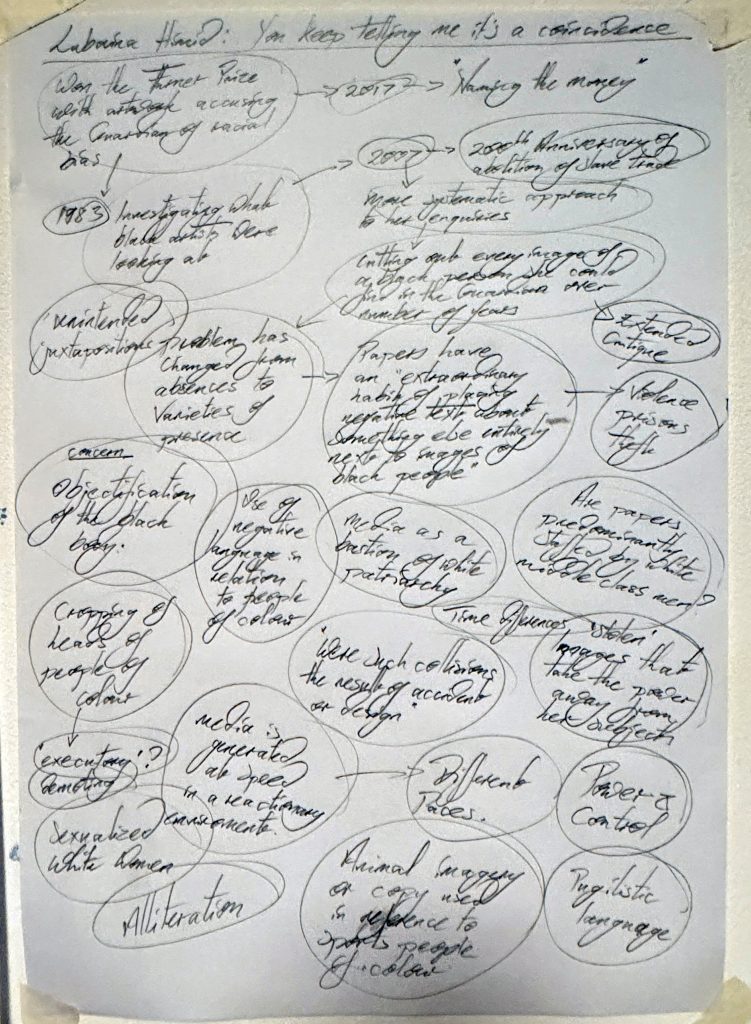 Lubaina Himid: You keep telling me it's a coincidence
Won the Turner Prize
with artwork accusing
the Guardian of racial
bias
2017
"Naming the money"
2007
200th Anniversary of
abolition of slave trade
1983
Investigating what
black artists were
looking at
more systematic approach
to her enquiries
cutting out every image of
a black person she could
in the Guardian over
number of years
'unintended
juxtapositions'
Problem has
changed from
absences to
varieties of
presence
Papers have
an "extraordinary
habit of placing
negative text about
something else entirely
next to images of
black people"
Extended
Critique
Violence
prisons
theft
concern
Objectification
of the black
body.
Use of
negative
language in
relation
to people
of colour
Media as a
bastion of white
patriarchy
Are papers
predominantly
staffed by white
middle class men?
Cropping of
heads of
people of
colour
Time differences
"Were such collisions
the result of accident
or design"
'Stolen'
images that
take the power
away from
her subjects
'executory'?
demoting
Media is
generated
at speed
in a reactionary
environment.
Different
Paces.
Power &
Control
Sexualized
White Women
Alliteration
Animal imagery
or copy used
in reference to
sports people
of colour
Pugilistic
language